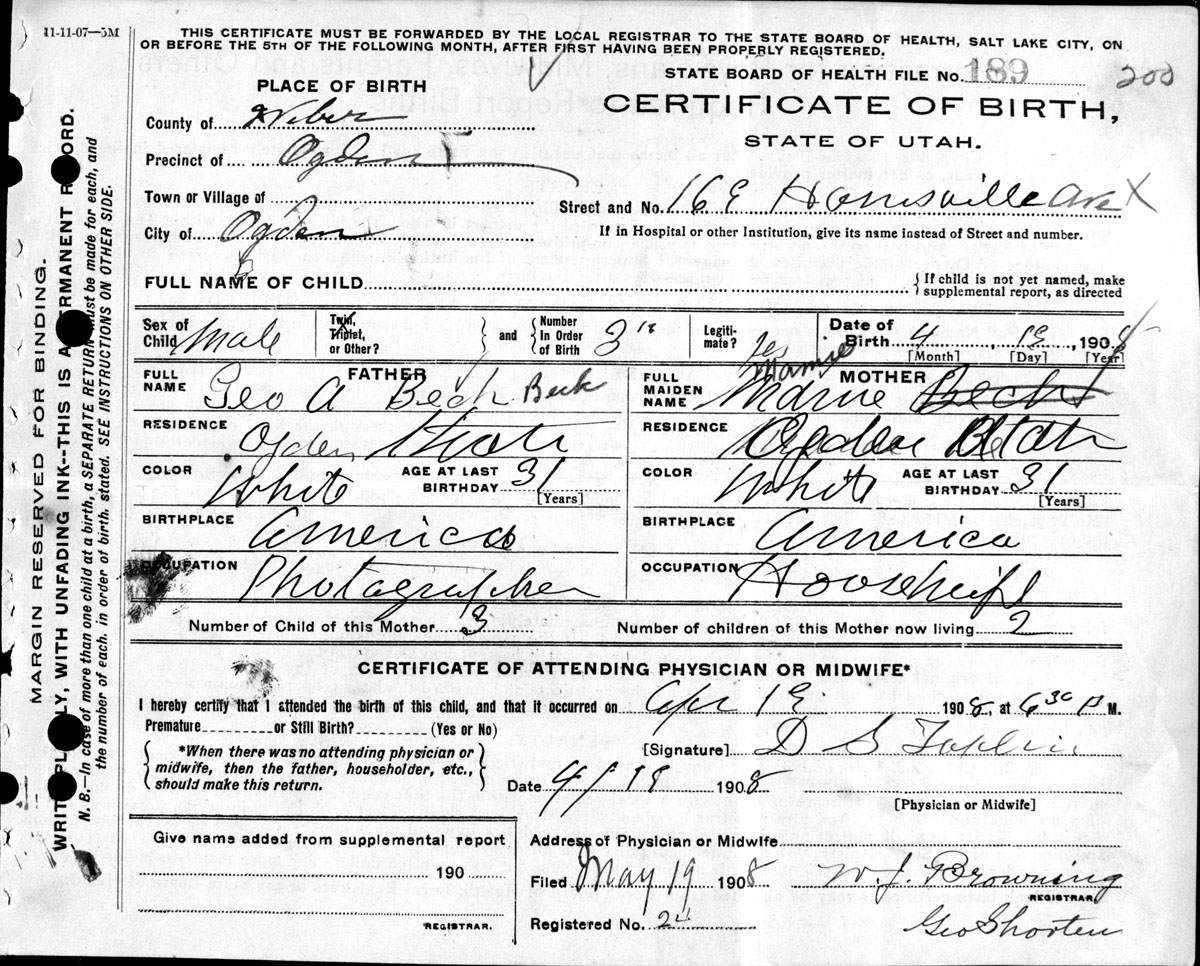 11-11-07—5M
THIS CERTIFICATE MUST BE FORWARDED BY THE LOCAL REGISTRAR TO THE STATE BOARD OF HEALTH, SALT LAKE CITY, ON
OR BEFORE THE 5TH OF THE FOLLOWING MONTH, AFTER FIRST HAVING BEEN PROPERLY REGISTERED.
STATE BOARD OF HEALTH FILE No. 189 200
PLACE OF BIRTH
CERTIFICATE OF BIRTH,
STATE OF UTAH.
County of Weber
Precinct of Ogden
Town or Village of
Street and No. 16 E Harrisville Ave X
City of Ogden
If in Hospital or other Institution, give its name instead of Street and number.
FULL NAME OF CHILD
{ If child is not yet named, make
supplemental report, as directed
Sex of Child Male
Twin, Triplet, or Other? } and { Number In Order of Birth 3
Legitimate? Yes
Date of Birth 4 [Month], 19 [Day], 1908 [Year]
FATHER
FULL NAME Geo A Bech Beck
RESIDENCE Ogden Utah
COLOR White AGE AT LAST BIRTHDAY 31 [Years]
BIRTHPLACE America
OCCUPATION Photographer
MOTHER
FULL MAIDEN NAME Mamie Mamie
RESIDENCE Ogden Utah
COLOR White AGE AT LAST BIRTHDAY 31 [Years]
BIRTHPLACE America
OCCUPATION Housewife
Number of Child of this Mother 3
Number of children of this Mother now living 2
CERTIFICATE OF ATTENDING PHYSICIAN OR MIDWIFE*
I hereby certify that I attended the birth of this child, and that it occurred on Apr 19 1908, at 6 30 P M.
Premature or Still Birth? (Yes or No)
{ *When there was no attending physician or
midwife, then the father, householder, etc.,
should make this return. }
[Signature] D S
Date 4/19 1908
[Physician or Midwife]
Give name added from supplemental report
190
REGISTRAR.
Address of Physician or Midwife
Filed May 19 1908 W. J. Browning
REGISTRAR
Registered No. 24 Geo Shorten
MARGIN RESERVED FOR BINDING.
WRITE PLAINLY, WITH UNFADING INK--THIS IS A PERMANENT RECORD.
N. B.—In case of more than one child at a birth, a SEPARATE RETURN must be made for each, and
the number of each, in order of birth, stated. SEE INSTRUCTIONS ON OTHER SIDE.